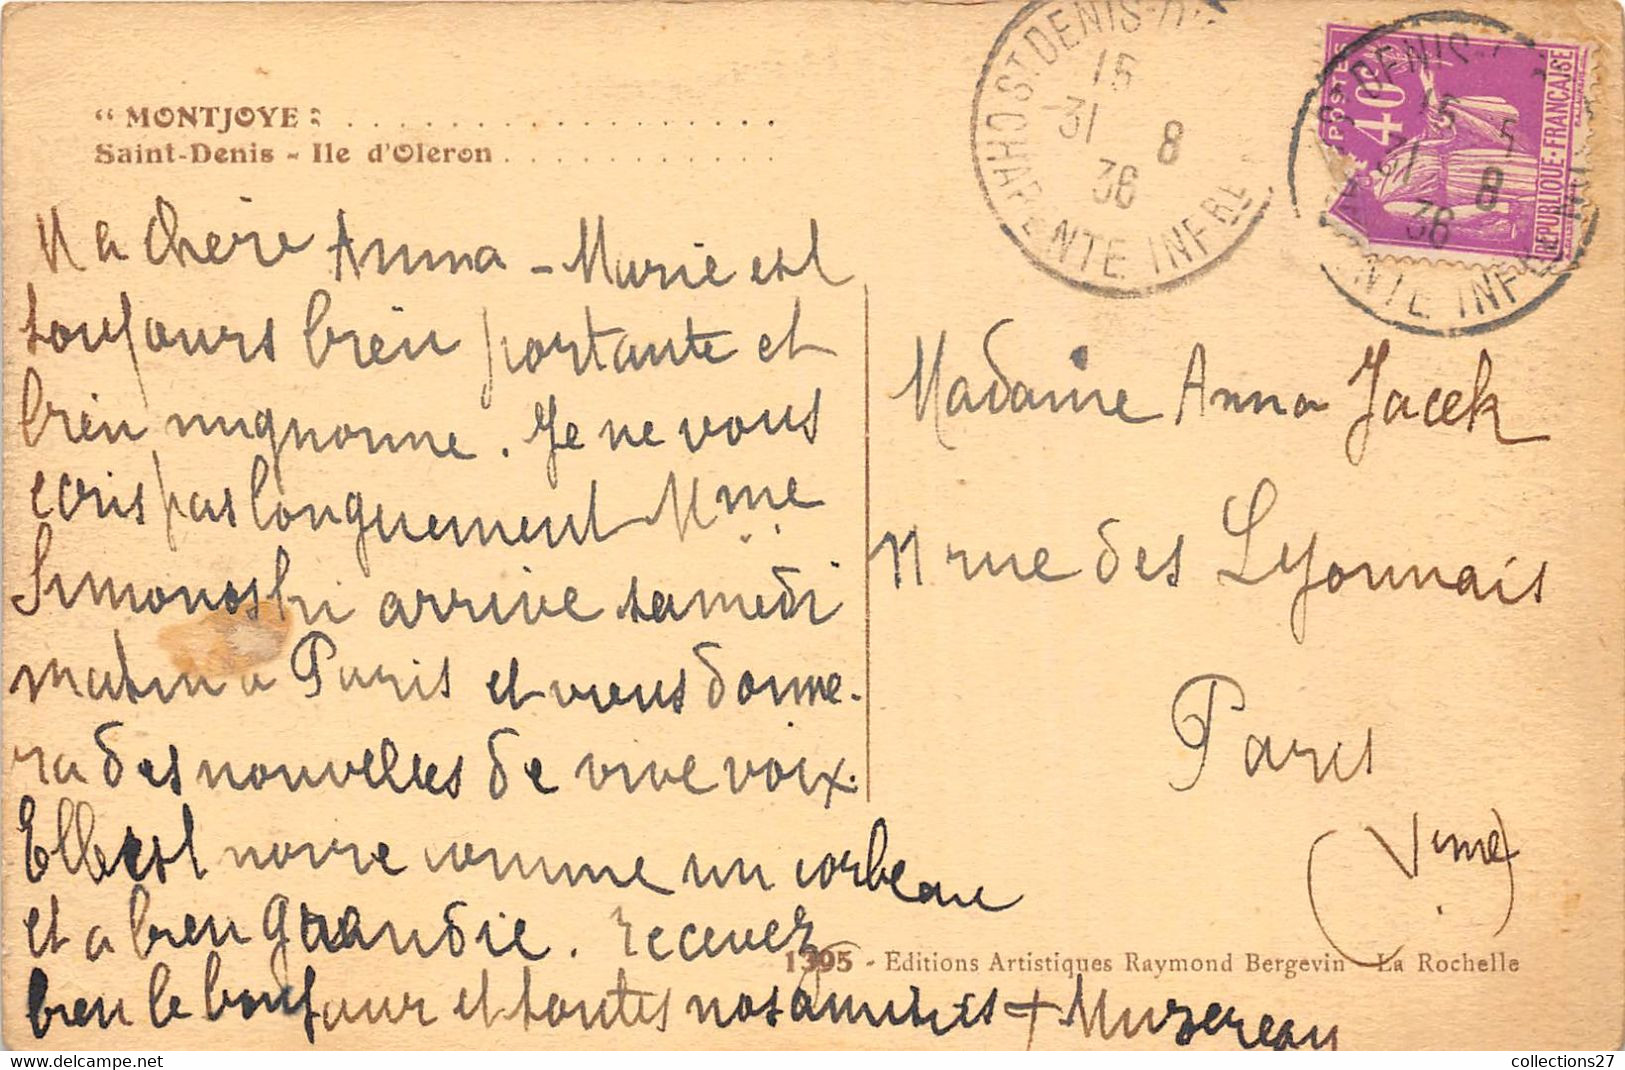 " MONTJOYE "
Saint-Denis - Ile d'Oleron
Ma chère Anna - Marie est
toujours bien portante et
bien mignonne. Je ne vous
ecris pas longuement Mme
arrive samedi
matin a Paris et vous donne-
ra des nouvelles de vive voix.
Elle est noire comme un corbeau
et a bien grandie. recevez
bien le bonjour et toutes nos amitiés +
1395 - Editions Artistiques Raymond Bergevin - La Rochelle
ST DENIS-D'
CHARENTE INFRE
15
31 8
36
POSTES
40c
REPUBLIQUE-FRANÇAISE
ST DENIS
15
31 8
36
NTE INFRE
Madame Anna Jacek
11 rue des Lyonnais
Paris
(Vme)
collections27